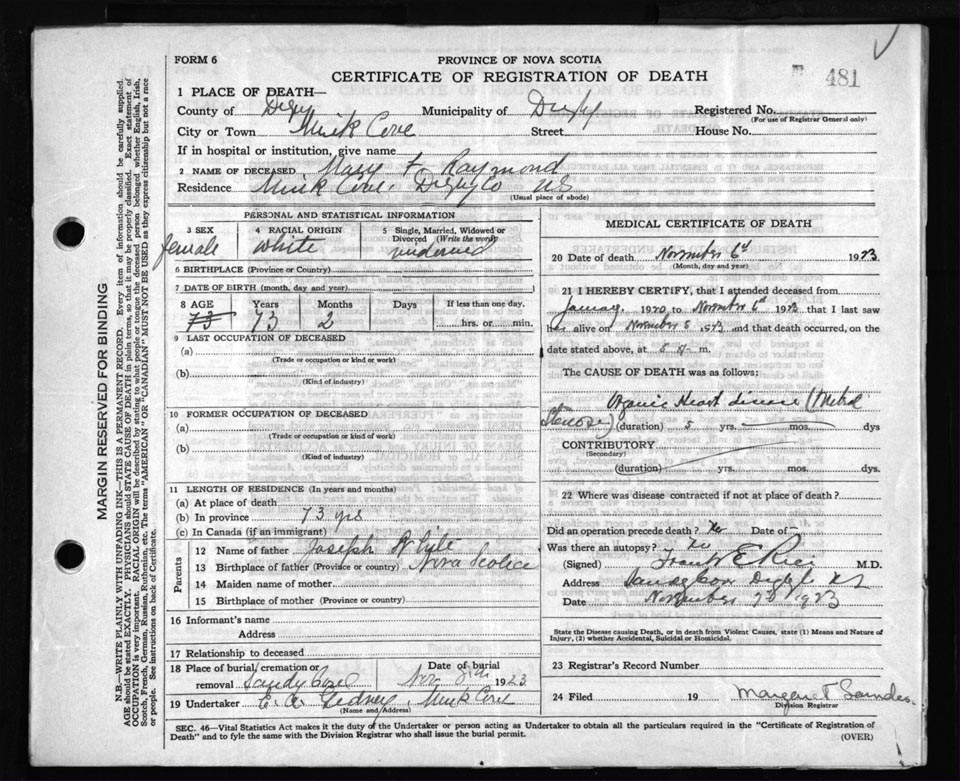 FORM 6
PROVINCE OF NOVA SCOTIA
CERTIFICATE OF REGISTRATION OF DEATH
481
1 PLACE OF DEATH—
County of Digby Municipality of Digby Registered No.
(For use of Registrar General only)
City or Town Mink Cove Street House No.
If in hospital or institution, give name
2 NAME OF DECEASED Mary F. Raymond
Residence Mink Cove, Digby Co NS
(Usual place of abode)
PERSONAL AND STATISTICAL INFORMATION
3 SEX female
4 RACIAL ORIGIN white
5 Single, Married, Widowed or Divorced (Write the word) widowed
6 BIRTHPLACE (Province or Country)
7 DATE OF BIRTH (month, day and year)
8 AGE Years Months Days If less than one day,
73 73 2 hrs. or min.
9 LAST OCCUPATION OF DECEASED
(a)
(Trade or occupation or kind of work)
(b)
(Kind of industry)
10 FORMER OCCUPATION OF DECEASED
(a)
(Trade or occupation or kind of work)
(b)
(Kind of industry)
11 LENGTH OF RESIDENCE (In years and months)
(a) At place of death
(b) In province 73 yrs
(c) In Canada (if an immigrant)
Parents
12 Name of father Joseph
13 Birthplace of father (Province or country) Nova Scotia
14 Maiden name of mother
15 Birthplace of mother (Province or country)
16 Informant's name
Address
17 Relationship to deceased
18 Place of burial, cremation or removal Sandy Cove
Date of burial Nov 1923
19 Undertaker E. A. Gidney, Mink Cove
(Name and Address)
MEDICAL CERTIFICATE OF DEATH
20 Date of death November 6th 1923
(Month, day and year)
21 I HEREBY CERTIFY, that I attended deceased from
January 1920 to November 6th 1923 that I last saw
her alive on November 5 1923 and that death occurred, on the
date stated above, at 5 m.
The CAUSE OF DEATH was as follows:
Organic Heart disease (Mitral
Stenosis) (duration) 5 yrs. mos. dys
CONTRIBUTORY
(Secondary)
(duration) yrs. mos. dys.
22 Where was disease contracted if not at place of death?
Did an operation precede death? No Date of
Was there an autopsy? No
(Signed) Frank E Rice M.D.
Address Sandy Cove Digby NS
Date November 1923
State the Disease causing Death, or in death from Violent Causes, state (1) Means and Nature of
Injury, (2) whether Accidental, Suicidal or Homicidal.
23 Registrar's Record Number
24 Filed 19 Margaret Saunders
Division Registrar
SEC. 46—Vital Statistics Act makes it the duty of the Undertaker or person acting as Undertaker to obtain all the particulars required in the "Certificate of Registration of
Death" and to fyle the same with the Division Registrar who shall issue the burial permit.
(OVER)
MARGIN RESERVED FOR BINDING
N.B.—WRITE PLAINLY WITH UNFADING INK—THIS IS A PERMANENT RECORD. Every item of information should be carefully supplied.
AGE should be stated EXACTLY. PHYSICIANS should STATE CAUSE OF DEATH in plain terms, so that it may be properly classified. Exact statement of
OCCUPATION is very important. RACIAL ORIGIN will be described by stating to what people or tongue the deceased person belonged whether English, Irish,
Scotch, French, German, Russian, Ruthenian, etc. The terms "AMERICAN" OR "CANADIAN" MUST NOT BE USED as they express citizenship but not a race
or people. See instructions on back of Certificate.